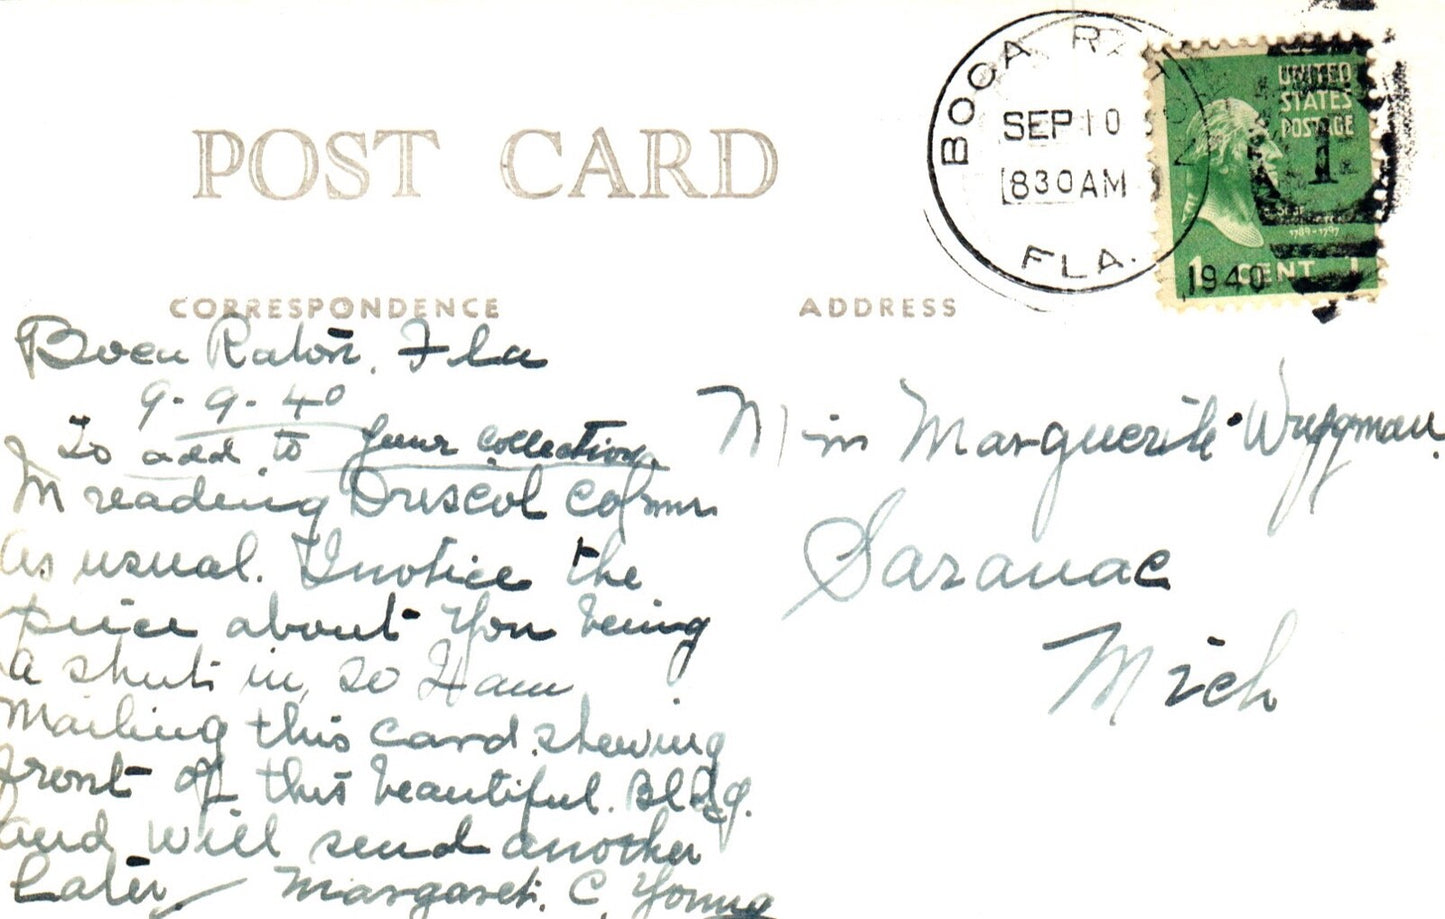 POST CARD
BOCA RATON
SEP 10
830 AM
FLA.
1940
UNITED
STATES
POSTAGE
1
1789-1797
1 CENT 1
CORRESPONDENCE
ADDRESS
Boca Raton, Fla
9-9-40
To add to your collection.
In reading Driscol Colmn
As usual. I notice the
piece about you being
A shut in, so I am
Mailing this card. shewing
front of this beautiful. Bldg.
and will send another
Later. Margaret. C. Young
Miss Marguerite Wrggman.
Saranac
Mich